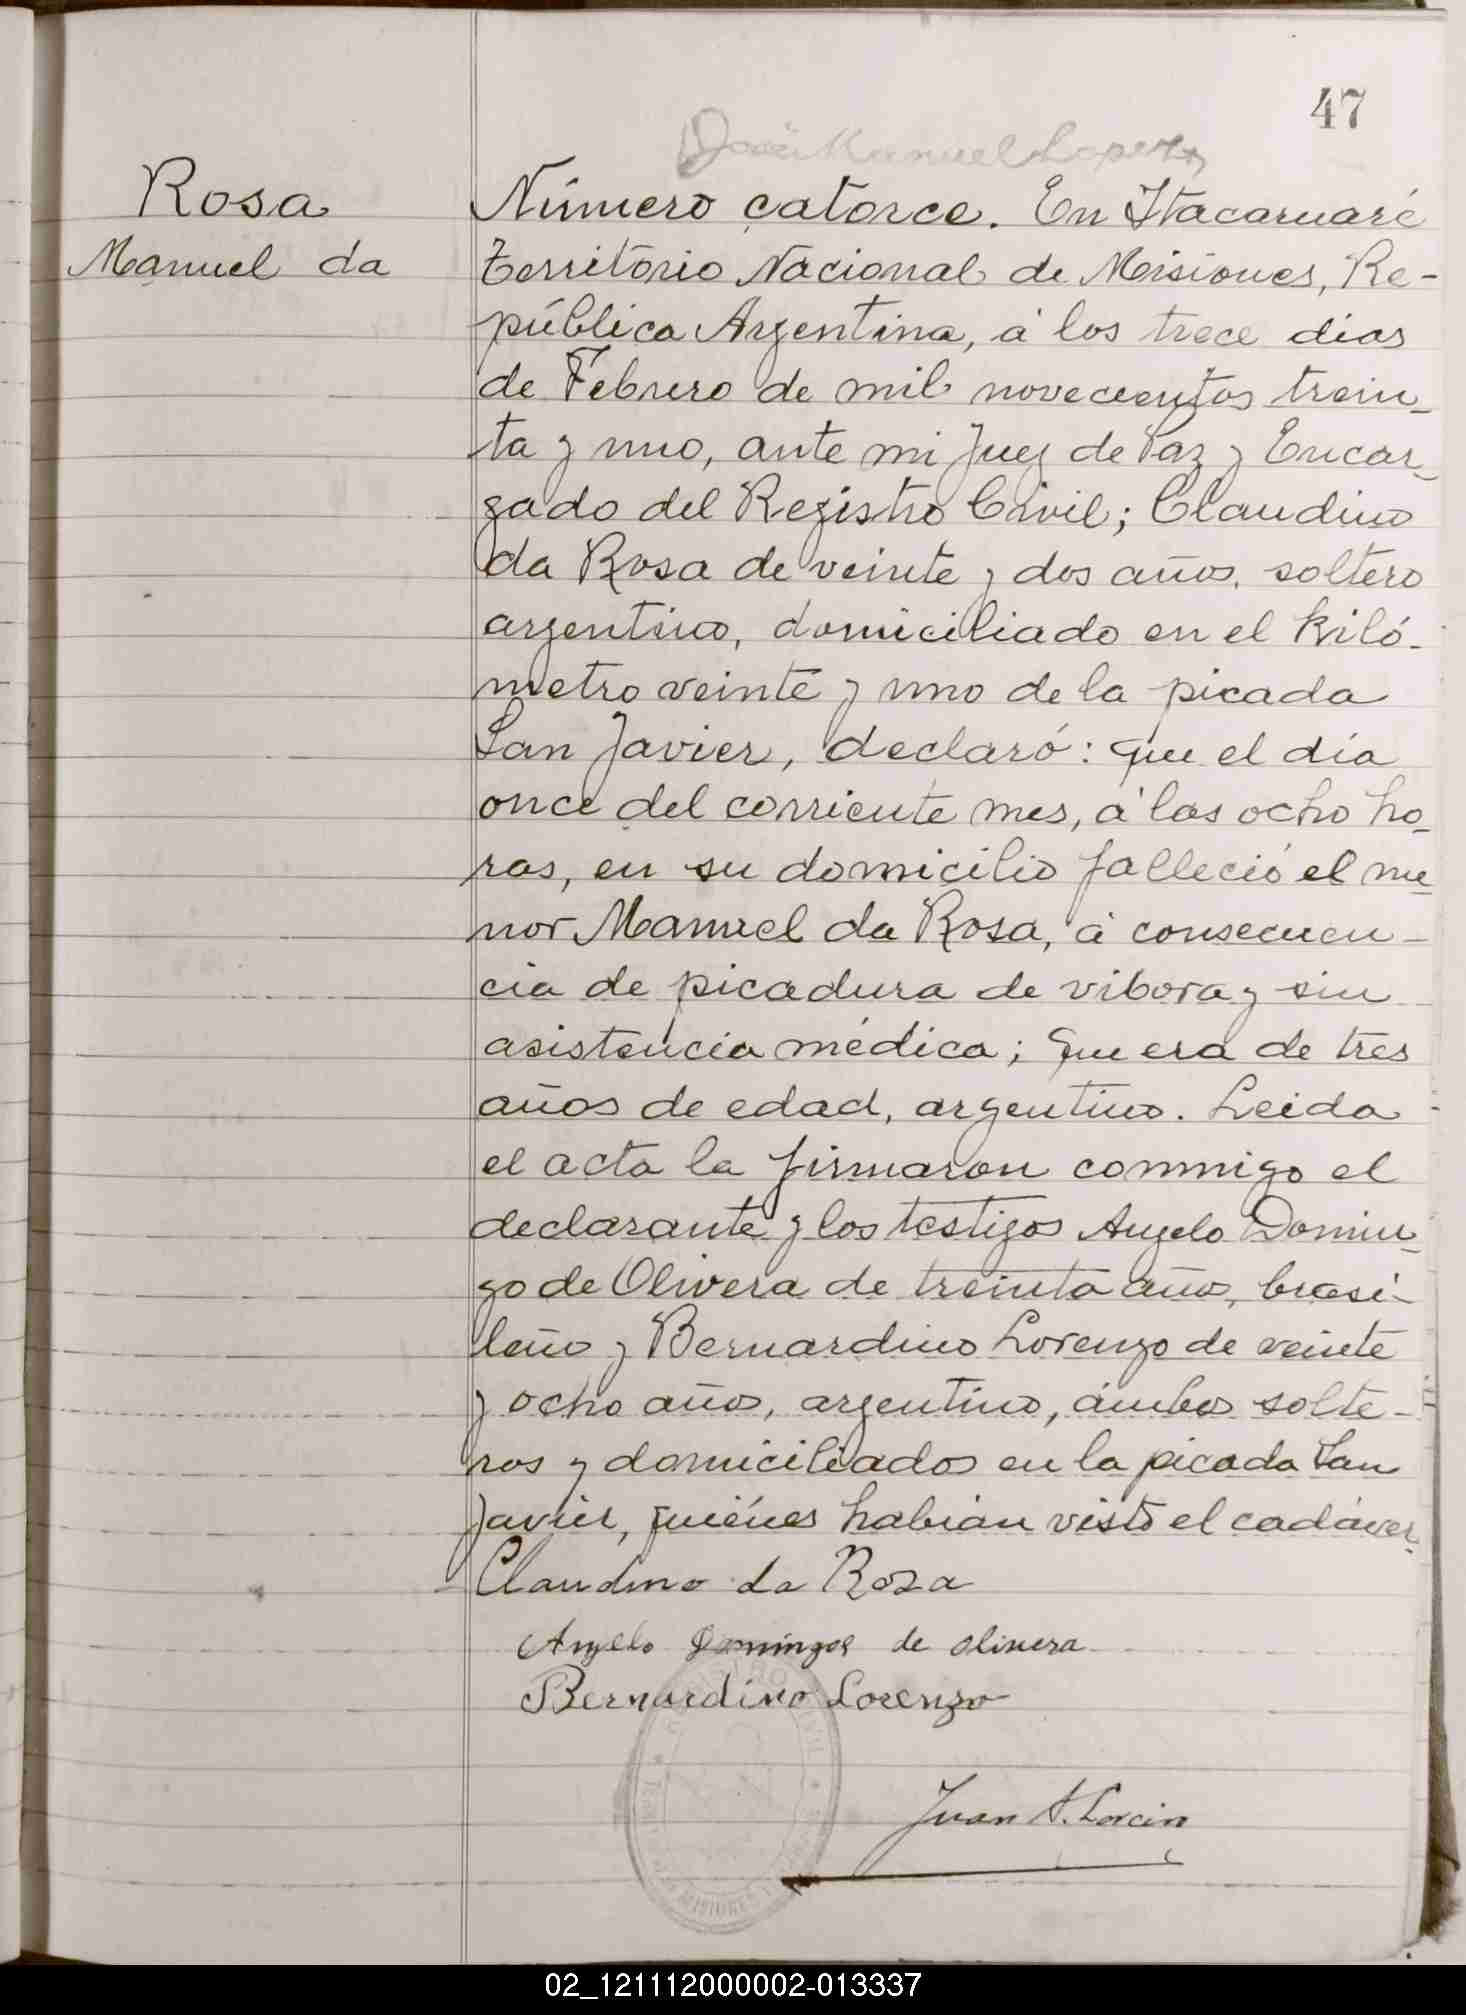 47
Manuel Lopez
Rosa
Manuel da
Número catorce. En Itacaruaré
Territorio Nacional de Misiones, Re-
pública Argentina, á los trece dias
de Febrero de mil novecientos trein_
ta y uno, ante mi Juez de Paz y Encar_
gado del Registro Civil; Claudino
da Rosa de veinte y dos años, soltero
argentino, domiciliado en el kiló-
metro veinte y uno de la picada
San Javier, declaró: que el día
once del corriente mes, á las ocho ho_
ras, en su domicilio falleció el me_
nor Manuel da Rosa, á consecuen-
cia de picadura de vibora y sin
asistencia médica; que era de tres
años de edad, argentino. Leida
el acta la firmaron conmigo el
declarante y los testigos Angelo Domin_
go de Olivera de treinta años, brasi-
leño y Bernardino Lorenzo de veinte
y ocho años, argentino, ámbos solte-
ros y domiciliados en la picada San
Javier, quiénes habian visto el cadáver_
Claudino da Rosa
Angelo Domingos de olivera
Bernardino Lorenzo
REGISTRO CIVIL
MISIONES
Juan A.
02_121112000002-013337